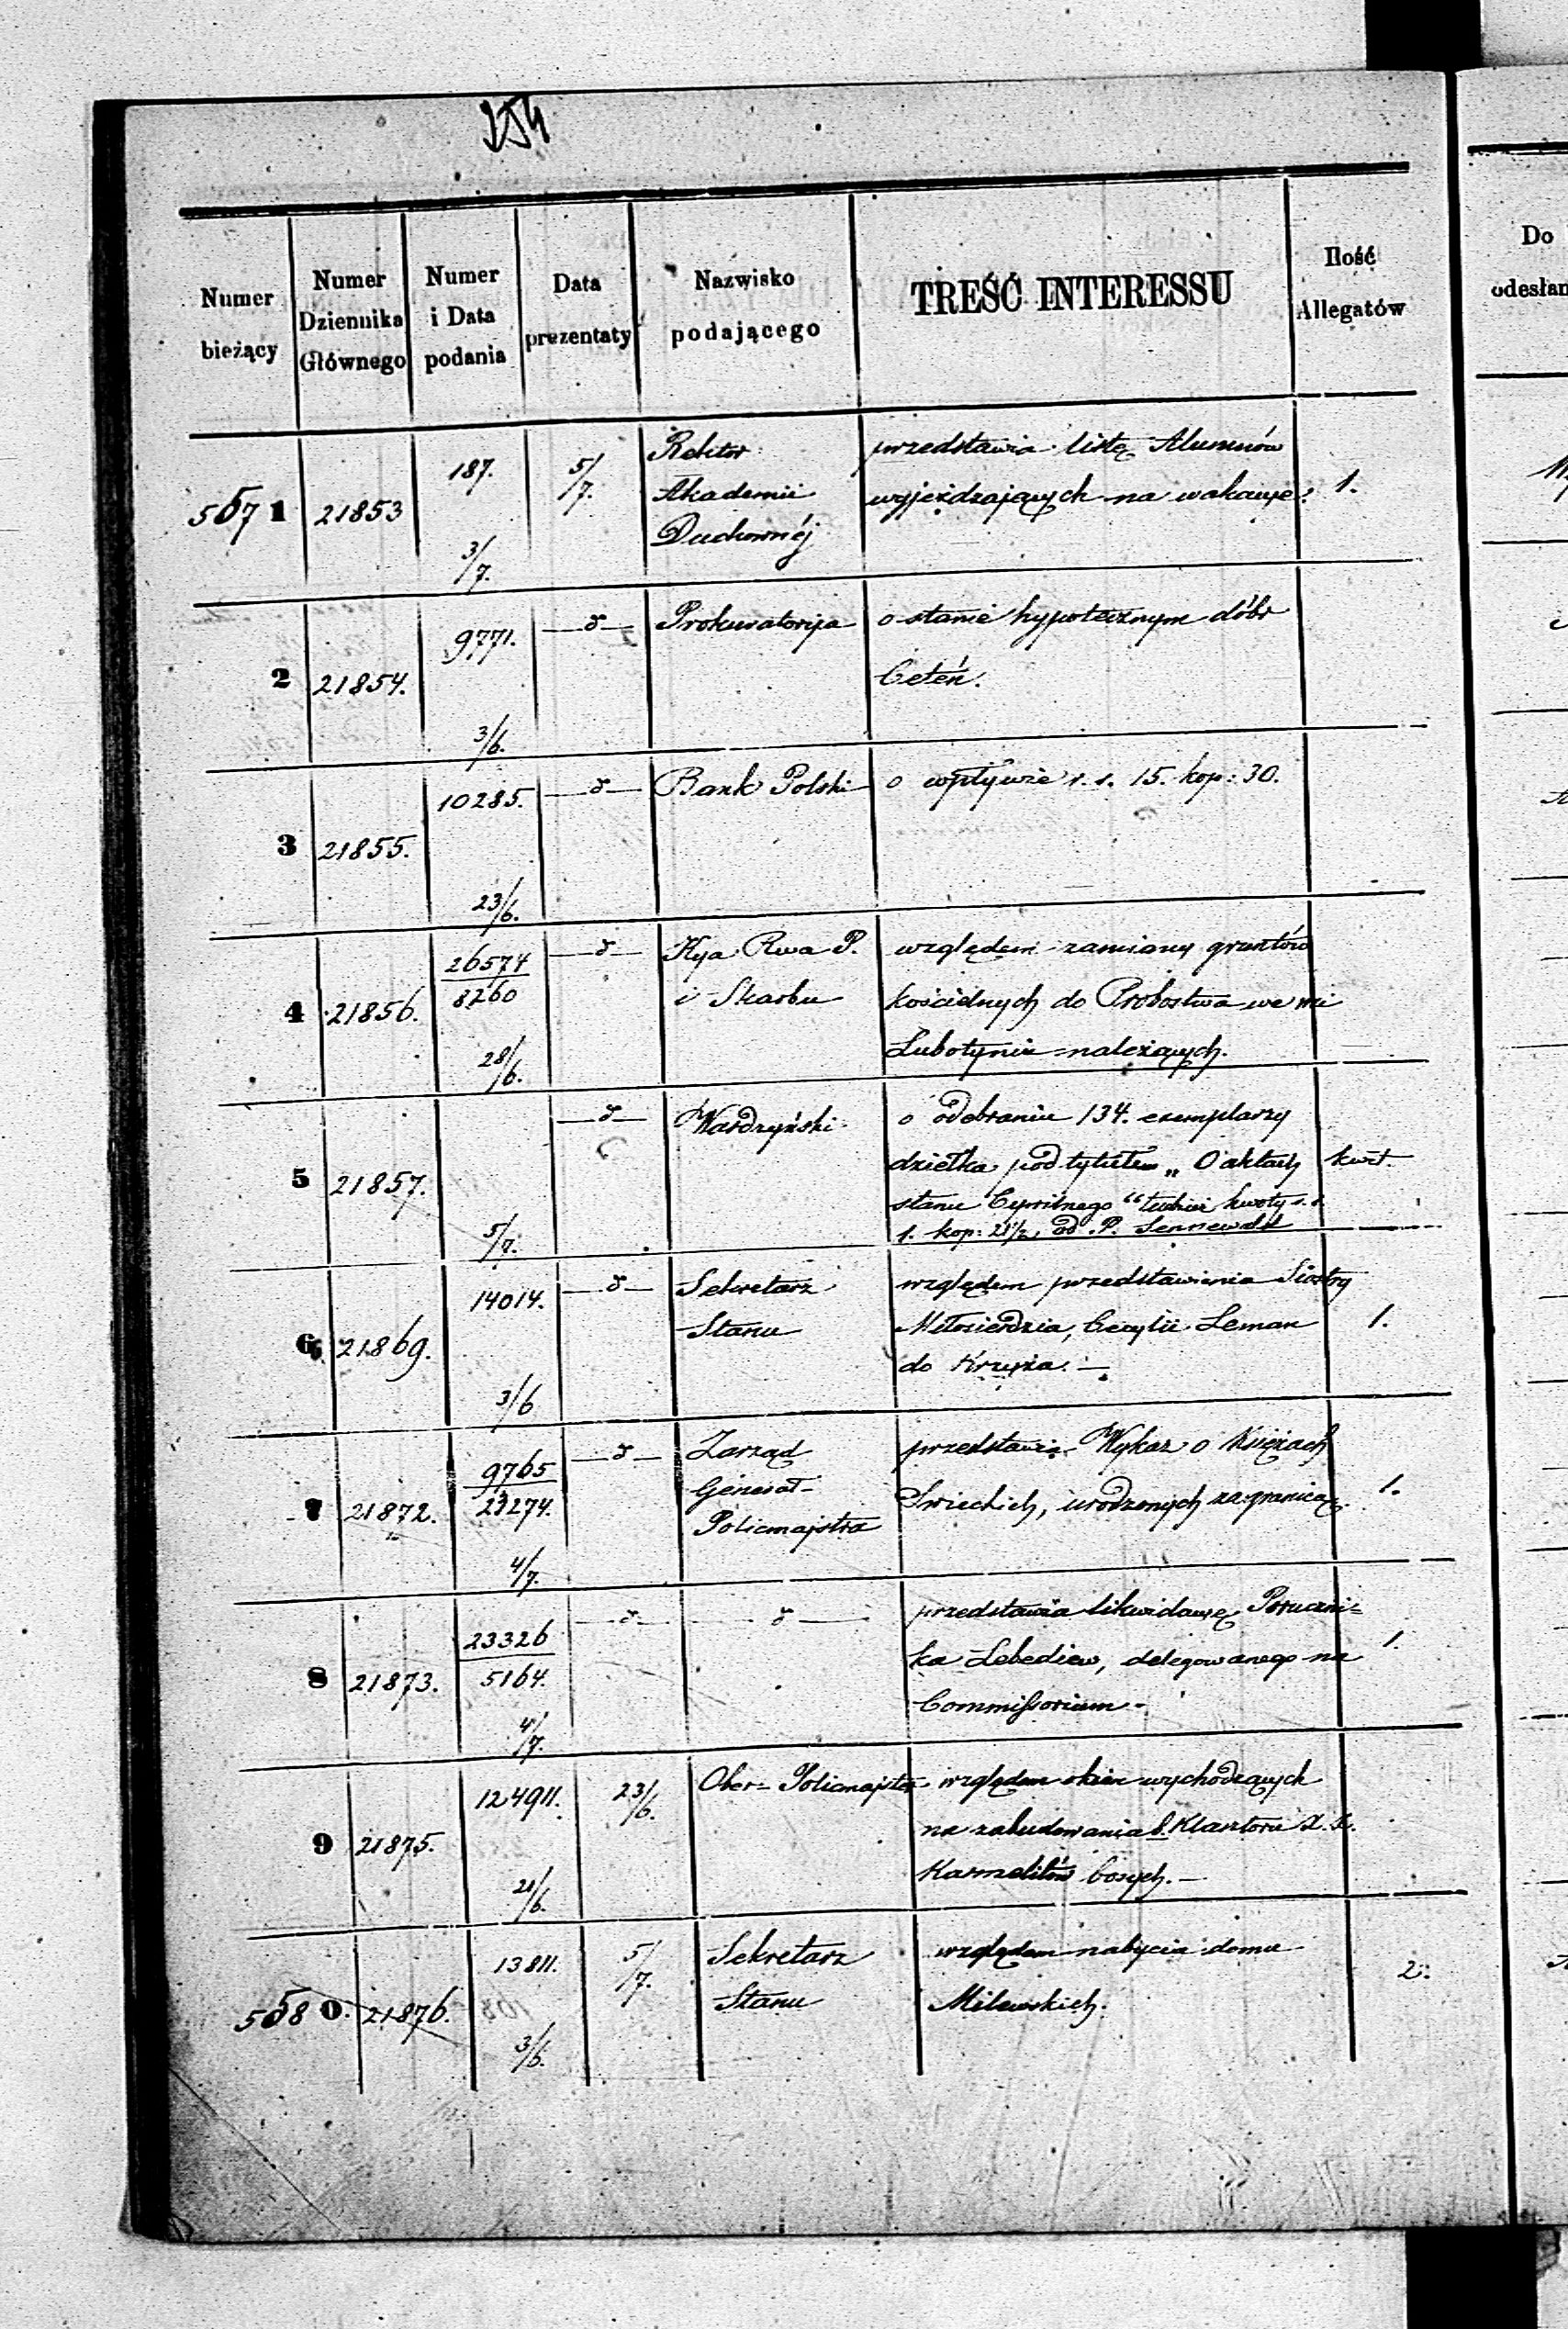 254
Numer bieżący | Numer Dziennika Głównego | Numer i Data podania | Data prezentaty | Nazwisko podającego | TREŚĆ INTERESSU | Ilość Allegatów
Do
odesłan
5571 | 21853 | 187. 3/7. | 5/7. | Rektor Akademii Duchownéj | przedstawia listę Alumnów
wyjeżdzających na wakacye. | 1.
2 | 21854. | 9771. 3/6. | —d— | Prokuratorija | o stanie hypotecznym dóbr
Ceteń.
3 | 21855. | 10285. 23/6. | —d— | Bank Polski | o wpływie r. s. 15. kop: 30.
4 | 21856. | 26574/8260 28/6. | —d— | Kya Rwa P. i Skarbu | względem zamiany gruntów
kościelnych do Probostwa we wsi
Lubotyniu należących.
5 | 21857. | 5/7. | —d— | Wardzyński | o odebraniu 134. exemplarzy
dziełka pod tytułem „O aktach | kwit.
stanu Cywilnego“ tudzież kwoty r. s.
1. kop: 21½, od P. Sennewald
6. | 21869. | 14014. 3/6 | —d— | Sekretarz Stanu | względem przedstawienia Siostry
Miłosierdzia, Cecylii Leman | 1.
do Krzyża. —
7 | 21872. | 9765/23274. 4/7. | —d— | Zarząd Generał-Policmajstra | przedstawia Wykaz o Księżach
Swieckich, urodzonych za granicą. | 1.
8 | 21873. | 23326/5164. 4/7. | —d— | —d— | przedstawia likwidacyę Poruczni=
ka Lebediew, delegowanego na | 1.
Commissorium.
9 | 21875. | 124911. 21/6. | 23/6. | Ober-Policmajster | względem okien wychodzących
na zabudowania b. Klasztoru X. X.
Karmelitów bosych. —
5580. | 21876. | 13811. 3/6. | 5/7. | Sekretarz Stanu | względem nabycia domu | 2.
Milewskich.